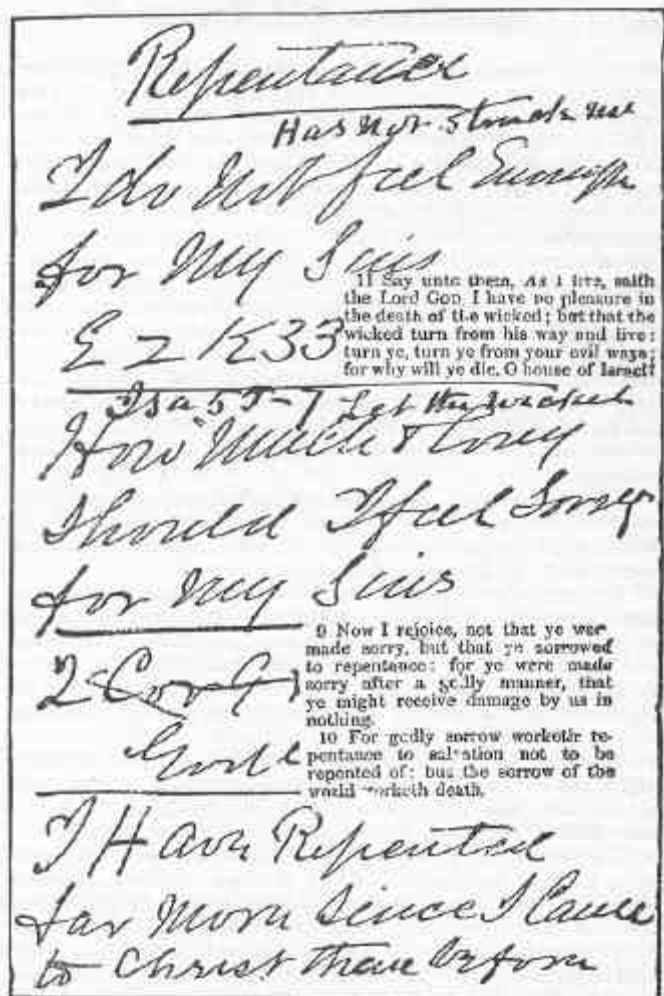 Repentance
Has not struck me
I do not feel Enough
for My Sins
11 Say unto them, As I live, saith
the Lord GOD, I have no pleasure in
the death of the wicked; but that the
wicked turn from his way and live:
turn ye, turn ye from your evil ways;
for why will ye die, O house of Israel?
EzK33
Isa 55-7 Let the wicked
How Much & Long
Should I feel Sorry
for My Sins
9 Now I rejoice, not that ye were
made sorry, but that ye sorrowed
to repentance: for ye were made
sorry after a godly manner, that
ye might receive damage by us in
nothing.
10 For godly sorrow worketh re-
pentance to salvation not to be
repented of: but the sorrow of the
world worketh death.
2 Cor
I Have Repented
far More Since I Came
to Christ than before